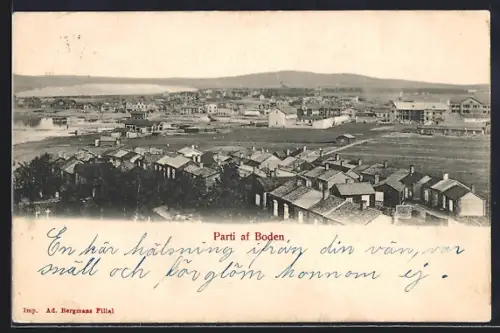 Parti af Boden
En kär hälsning ifrån din vän, var
snäll och förglöm honnom ej.
Imp. Ad. Bergmans Filial